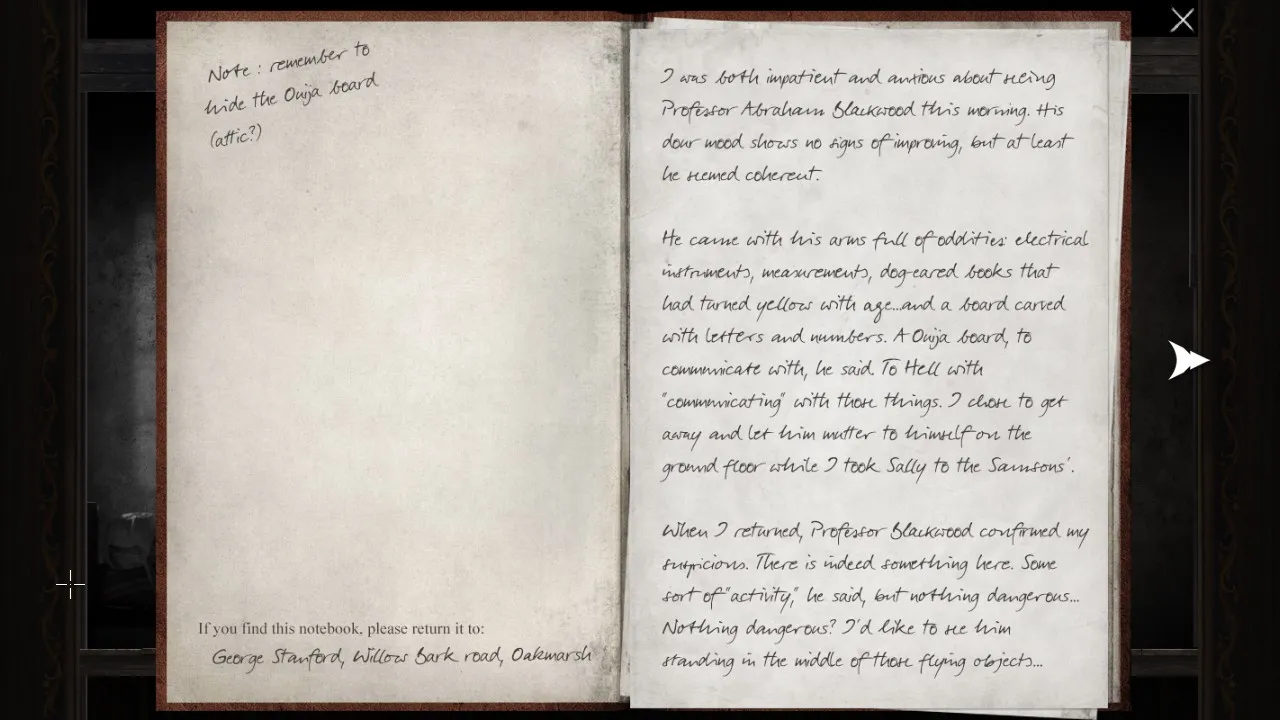 Note : remember to
hide the Ouija board
(attic?)
If you find this notebook, please return it to:
George Stanford, Willow Bark road, Oakmarsh
I was both impatient and anxious about seeing
Professor Abraham Blackwood this morning. His
dour mood shows no signs of improving, but at least
he seemed coherent.
He came with his arms full of oddities: electrical
instruments, measurements, dog-eared books that
had turned yellow with age...and a board carved
with letters and numbers. A Ouija board, to
communicate with, he said. To Hell with
"communicating" with those things. I chose to get
away and let him mutter to himself on the
ground floor while I took Sally to the Samsons'.
When I returned, Professor Blackwood confirmed my
suspicions. There is indeed something here. Some
sort of "activity," he said, but nothing dangerous...
Nothing dangerous? I'd like to see him
standing in the middle of those flying objects...